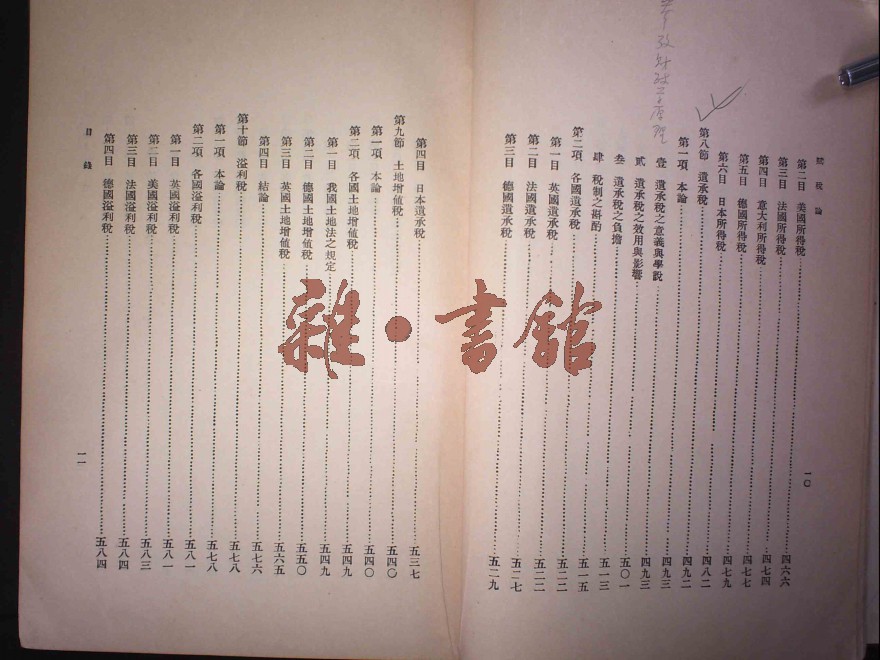 租稅論
第二目　美國所得稅……四六六
第三目　法國所得稅……四七四
第四目　意大利所得稅……四七四
第五目　德國所得稅……四七七
第六目　日本所得稅……四七九
第八節　遺承稅……四八二
第一項　本論……四九二
壹　遺承稅之意義與學說……四九三
貳　遺承稅之效用與影響……四九三
叁　遺承稅之負擔……五〇一
肆　稅制之斟酌……五一三
第二項　各國遺承稅……五一五
第一目　英國遺承稅……五二二
第二目　法國遺承稅……五二二
第三目　德國遺承稅……五二七
五二九
一〇
第四目　日本遺承稅……五三七
第九節　土地增値稅……五四〇
第一項　本論……五四〇
第二項　各國土地增値稅……五四九
第一目　我國土地法之規定……五四九
第二目　德國土地增値稅……五五〇
第三目　英國土地增値稅……五六五
第四目　結論……五七六
第十節　溢利稅……五七八
第一項　本論……五七八
第二項　各國溢利稅……五八一
第一目　英國溢利稅……五八一
第二目　美國溢利稅……五八三
第三目　法國溢利稅……五八四
第四目　德國溢利稅……五八四
目錄
一一
雜·書館